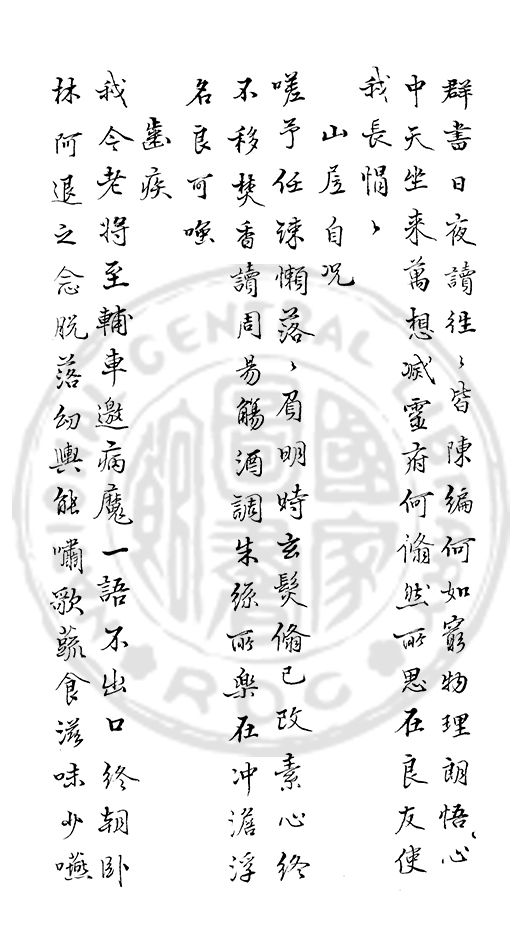 群書日夜讀往〻皆陳編何如窮物理朗悟心
中天坐來萬想滅靈府何翛然所思在良友使
我長悁〻
山居自況
嗟予任疎懶落〻眉明時玄髮倏已改素心終
不移焚香讀周易觴酒調朱絲所樂在冲澹浮
名良可嗤
齒疾
我今老將至輔車邀病魔一語不出口終朝卧
林阿退之念脫落幼輿能嘯歌蔬食滋味少嚥
GENERAL
ROC